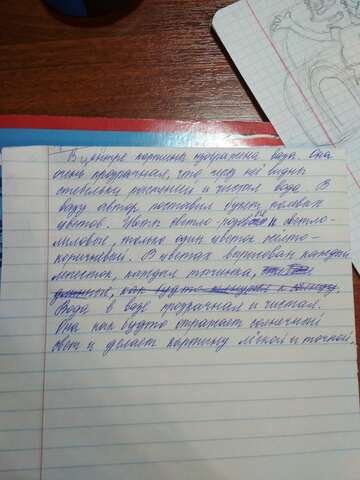 В центре картины изображена ваза. Она
очень прозрачная, что через неё видны
стебельки растений и чистая вода. В
вазу автор поставил букет полевых
цветов. Цветы светло-розовые и светло-
лиловые, только один цветок жёлто-
коричневый. В цветах выписан каждый
лепесток, каждая тычинка,
как будто
Вода в вазе прозрачная и чистая.
Она как будто отражает солнечный
свет и делает картину лёгкой и точной.